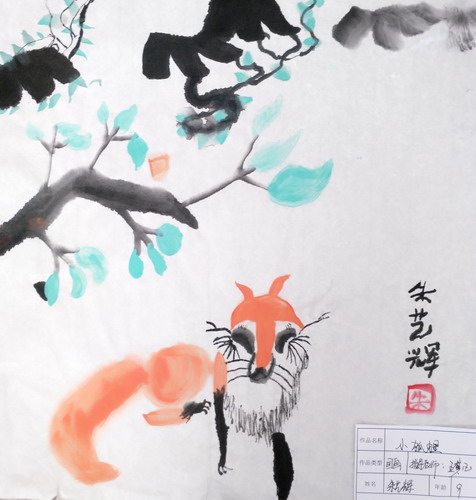 朱艺辉
朱
作品名称 小狐狸
作品类型 国画 指导老师:
姓名 朱艺辉 年龄 9